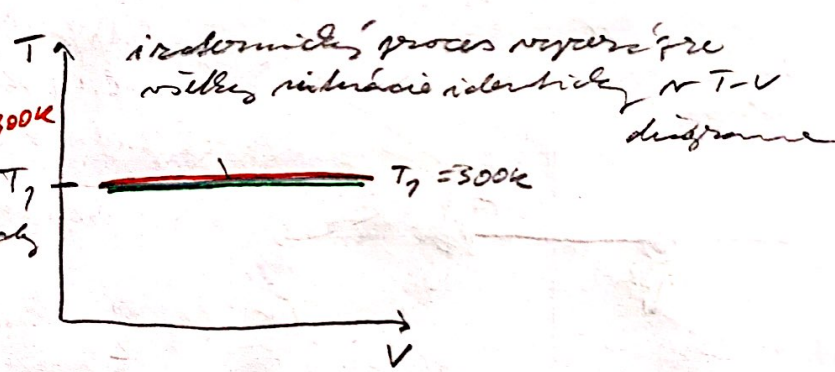 T izotermický proces vyzerá pre
všetky situácie identicky v T-V
diagrame
300K
T₁ T₁ = 300K
V